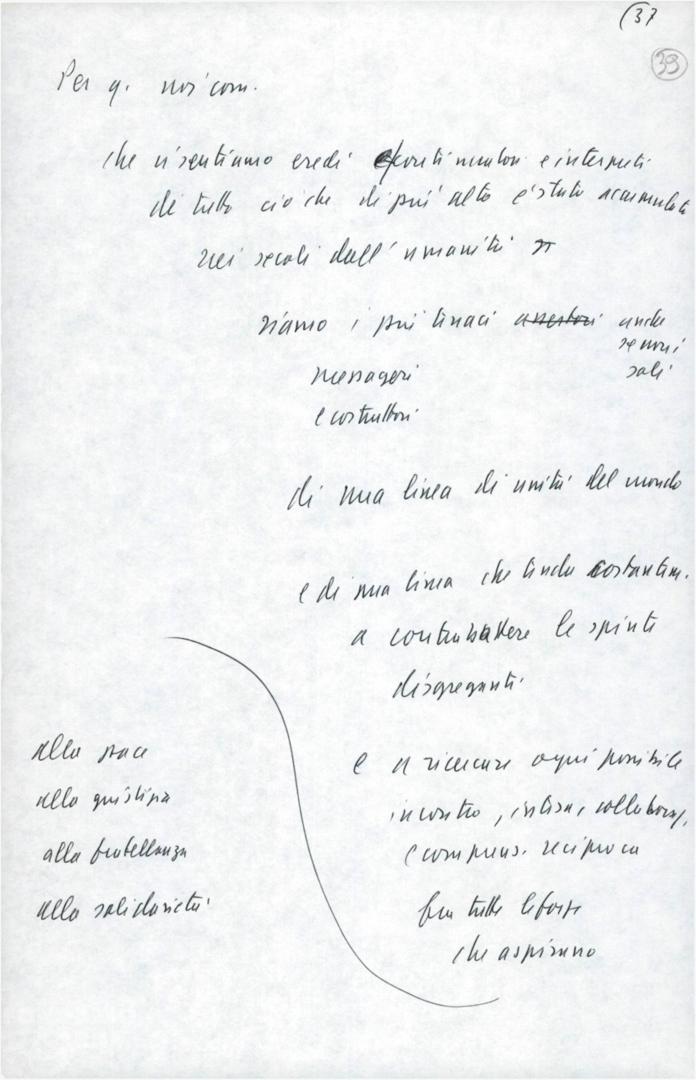 (37
39
Per q. noi com.
che ci sentiamo eredi continuatori e interpreti
di tutto ciò che di più alto è stato accumulato
nei secoli dall'umanità
siamo i più tenaci anche
se non i
soli
messageri
e costruttori
di una linea di unità del mondo
e di una linea che tende costantem.
a contrabattere le spinte
disgreganti
e a ricercare ogni possibile
incontro, intesa, collaboraz,
e comprens. reciproca
fra tutte le forze
che aspirano
alla pace
alla giustizia
alla fratellanza
alla solidarietà